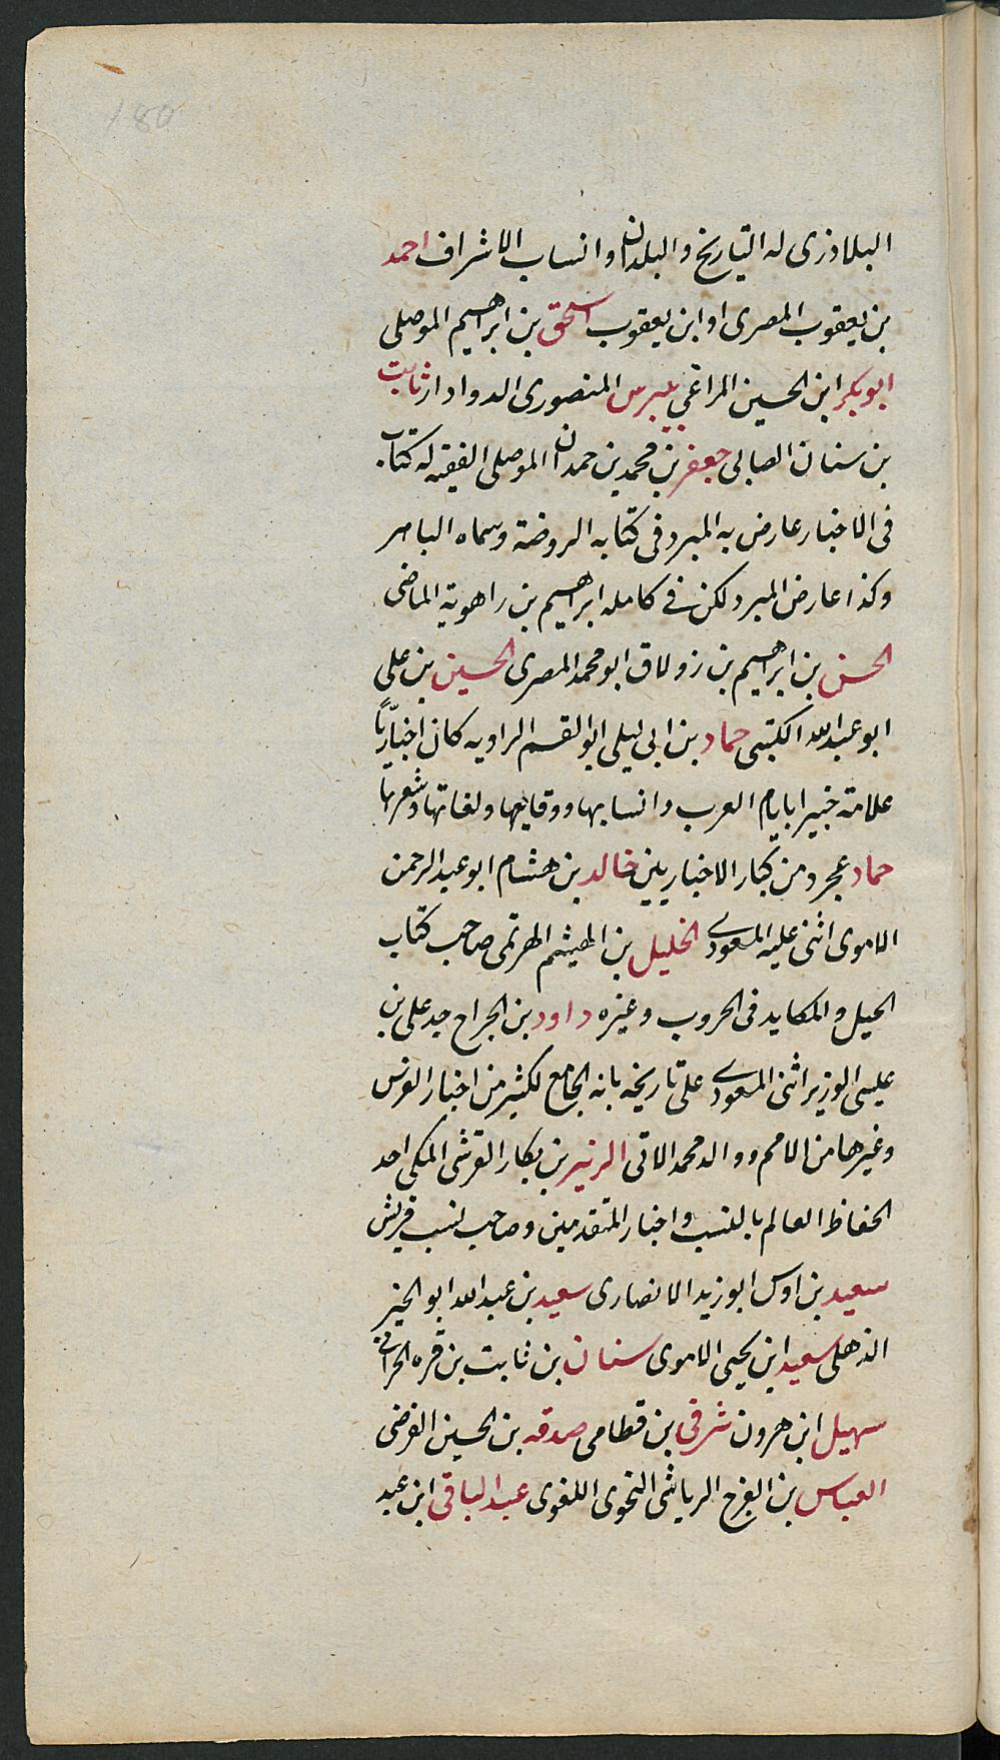 180
البلاذرى له التاريخ والبلدان وانساب الاشراف احمد
بن يعقوب المصرى او ابن يعقوب اسحق بن ابراهيم الموصلى
ابو بكر ابن الحسين المراغي بيبرس المنصورى الدوادار ثابت
بن سنان الصابى جعفر بن محمد بن حمدان الموصلى الفقيه له كتاب
فى الاخبار عارض به المبرد فى كتابه الروضة وسماه الباهر
وكذا عارض المبرد لكن فى كامله ابراهيم بن راهوية الماضى
الحسن بن ابراهيم بن زولاق ابو محمد المصرى الحسين بن على
ابو عبد الله الكتبى حماد بن ابى ليلى ابو القسم الراويه كان اخباريّاً
علامة خبيرا بايام العرب وانسابها ووقايعها ولغاتها وشعرها
حماد عجرد من كبار الاخباريين خالد بن هشام ابو عبد الرحمن
الاموى اثنى عليه المسعودى الخليل بن الهيثم الهرثمى صاحب كتاب
الحيل والمكايد فى الحروب وغيره داود بن الجراح جد على بن
عيسى الوزير اثنى المسعودى على تاريخه بانه الجامع لكثير من اخبار الفرس
وغيرها من الامم ووالد محمد الاتى الزبير بن بكار القرشى المكى احد
الحفاظ العالم بالنسب واخبار المتقدمين وصاحب نسب قريش
سعيد بن اوس ابو زيد الانصارى سعيد بن عبد الله ابو الخير
الذهلى سعيد ابن يحيى الاموى سنان بن ثابت بن قره الحرانى
سهيل ابن هرون شرقى بن قطامى صدقه بن الحسين الفرضى
العباس بن الفرج الرياشى النحوى اللغوى عبد الباقى ابن عبد